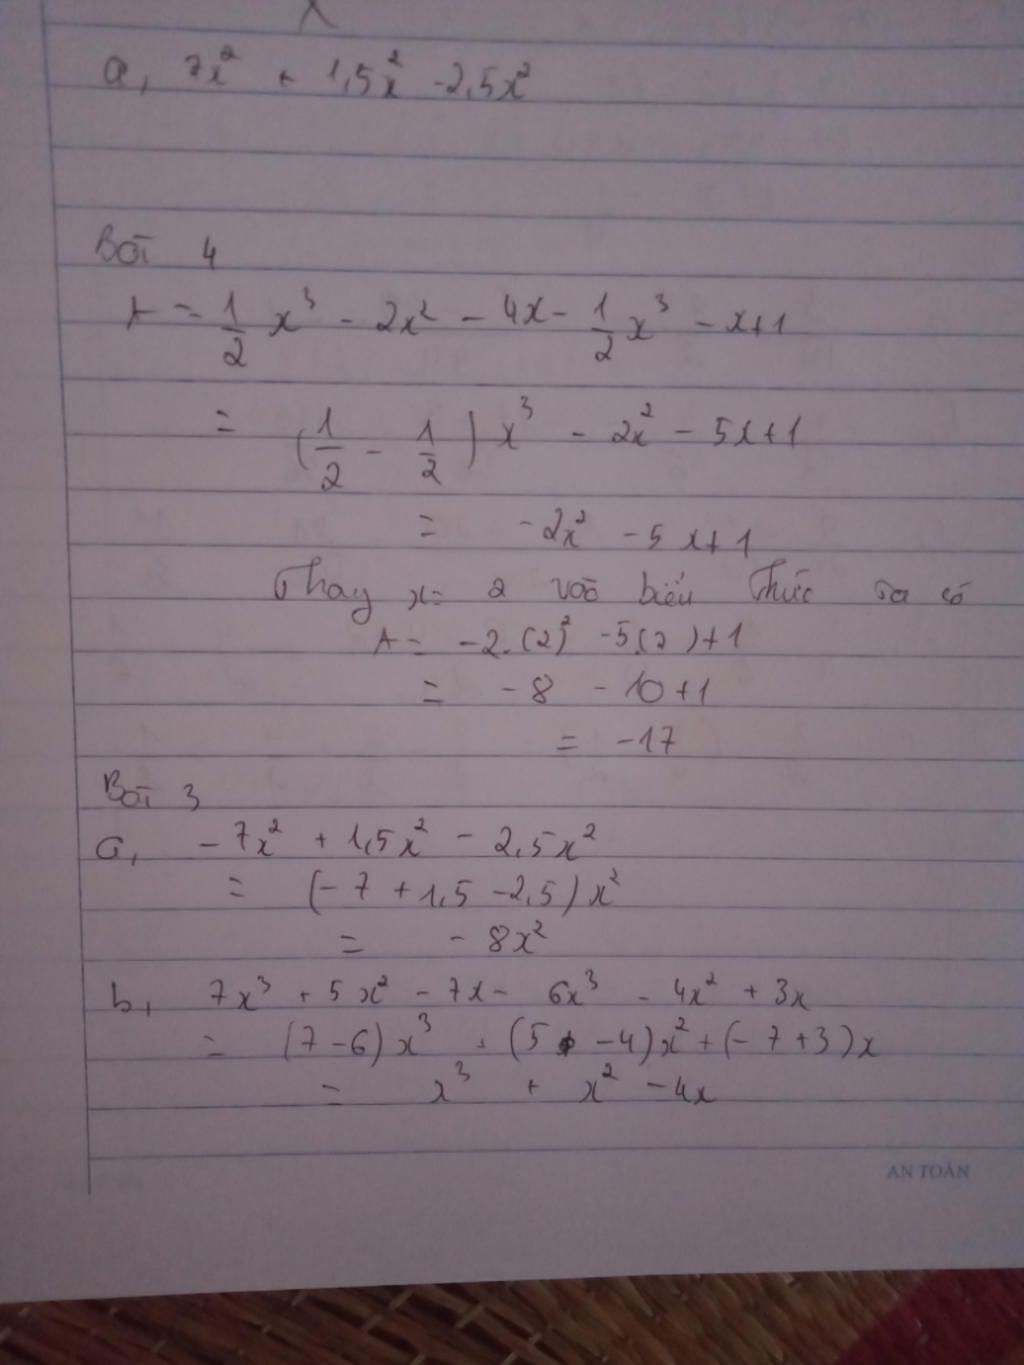 a, 7x² + 1,5x² - 2,5x²
Bài 4
A = 1/2 x³ - 2x² - 4x - 1/2 x³ - x + 1
= (1/2 - 1/2) x³ - 2x² - 5x + 1
= -2x² - 5x + 1
Thay x = 2 vào biểu thức ta có
A = -2.(2)² - 5.(2) + 1
= -8 - 10 + 1
= -17
Bài 3
a, -7x² + 1,5x² - 2,5x²
= (-7 + 1,5 - 2,5) x²
= -8x²
b, 7x³ + 5x² - 7x - 6x³ - 4x² + 3x
= (7 - 6) x³ + (5 - 4) x² + (-7 + 3) x
= x³ + x² - 4x
AN TOÀN